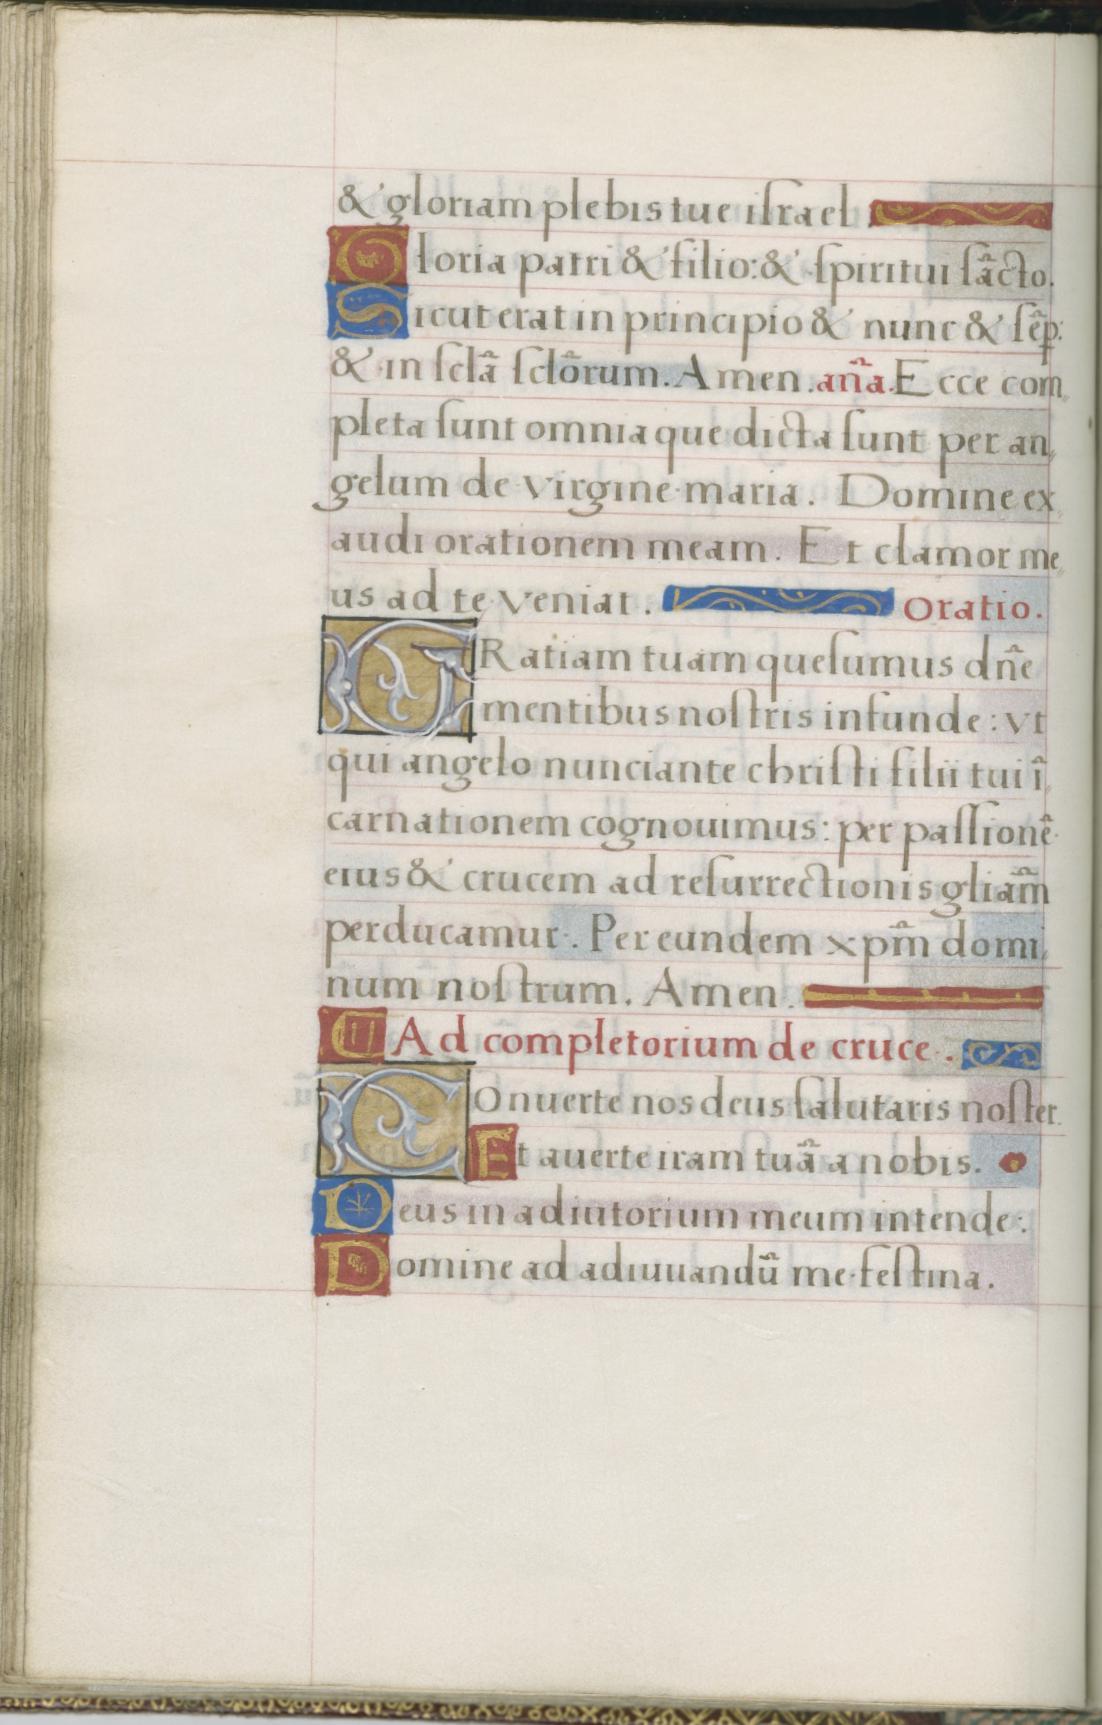 & gloriam plebis tue iſrael
Gloria patri & filio: & ſpiritui ſãcto.
Sicut erat in principio & nunc & ſẽp:
& in ſclã ſclõrum. Amen. añã. Ecce com,
pleta ſunt omnia que dicta ſunt per an,
gelum de virgine maria. Domine ex,
audi orationem meam. Et clamor me,
us ad te veniat. Oratio.
GRatiam tuam queſumus dñe
mentibus noſtris infunde: vt
qui angelo nunciante chriſti filii tui ĩ,
carnationem cognouimus: per paſſionẽ
eius & crucem ad reſurrectionis gliãm
perducamur. Per eundem xpm̃ domi,
num noſtrum. Amen.
Ad completorium de cruce.
COnuerte nos deus ſalutaris noſter.
Et auerte iram tuã a nobis.
Deus in adiutorium meum intende:
Domine ad adiuuandũ me feſtina.